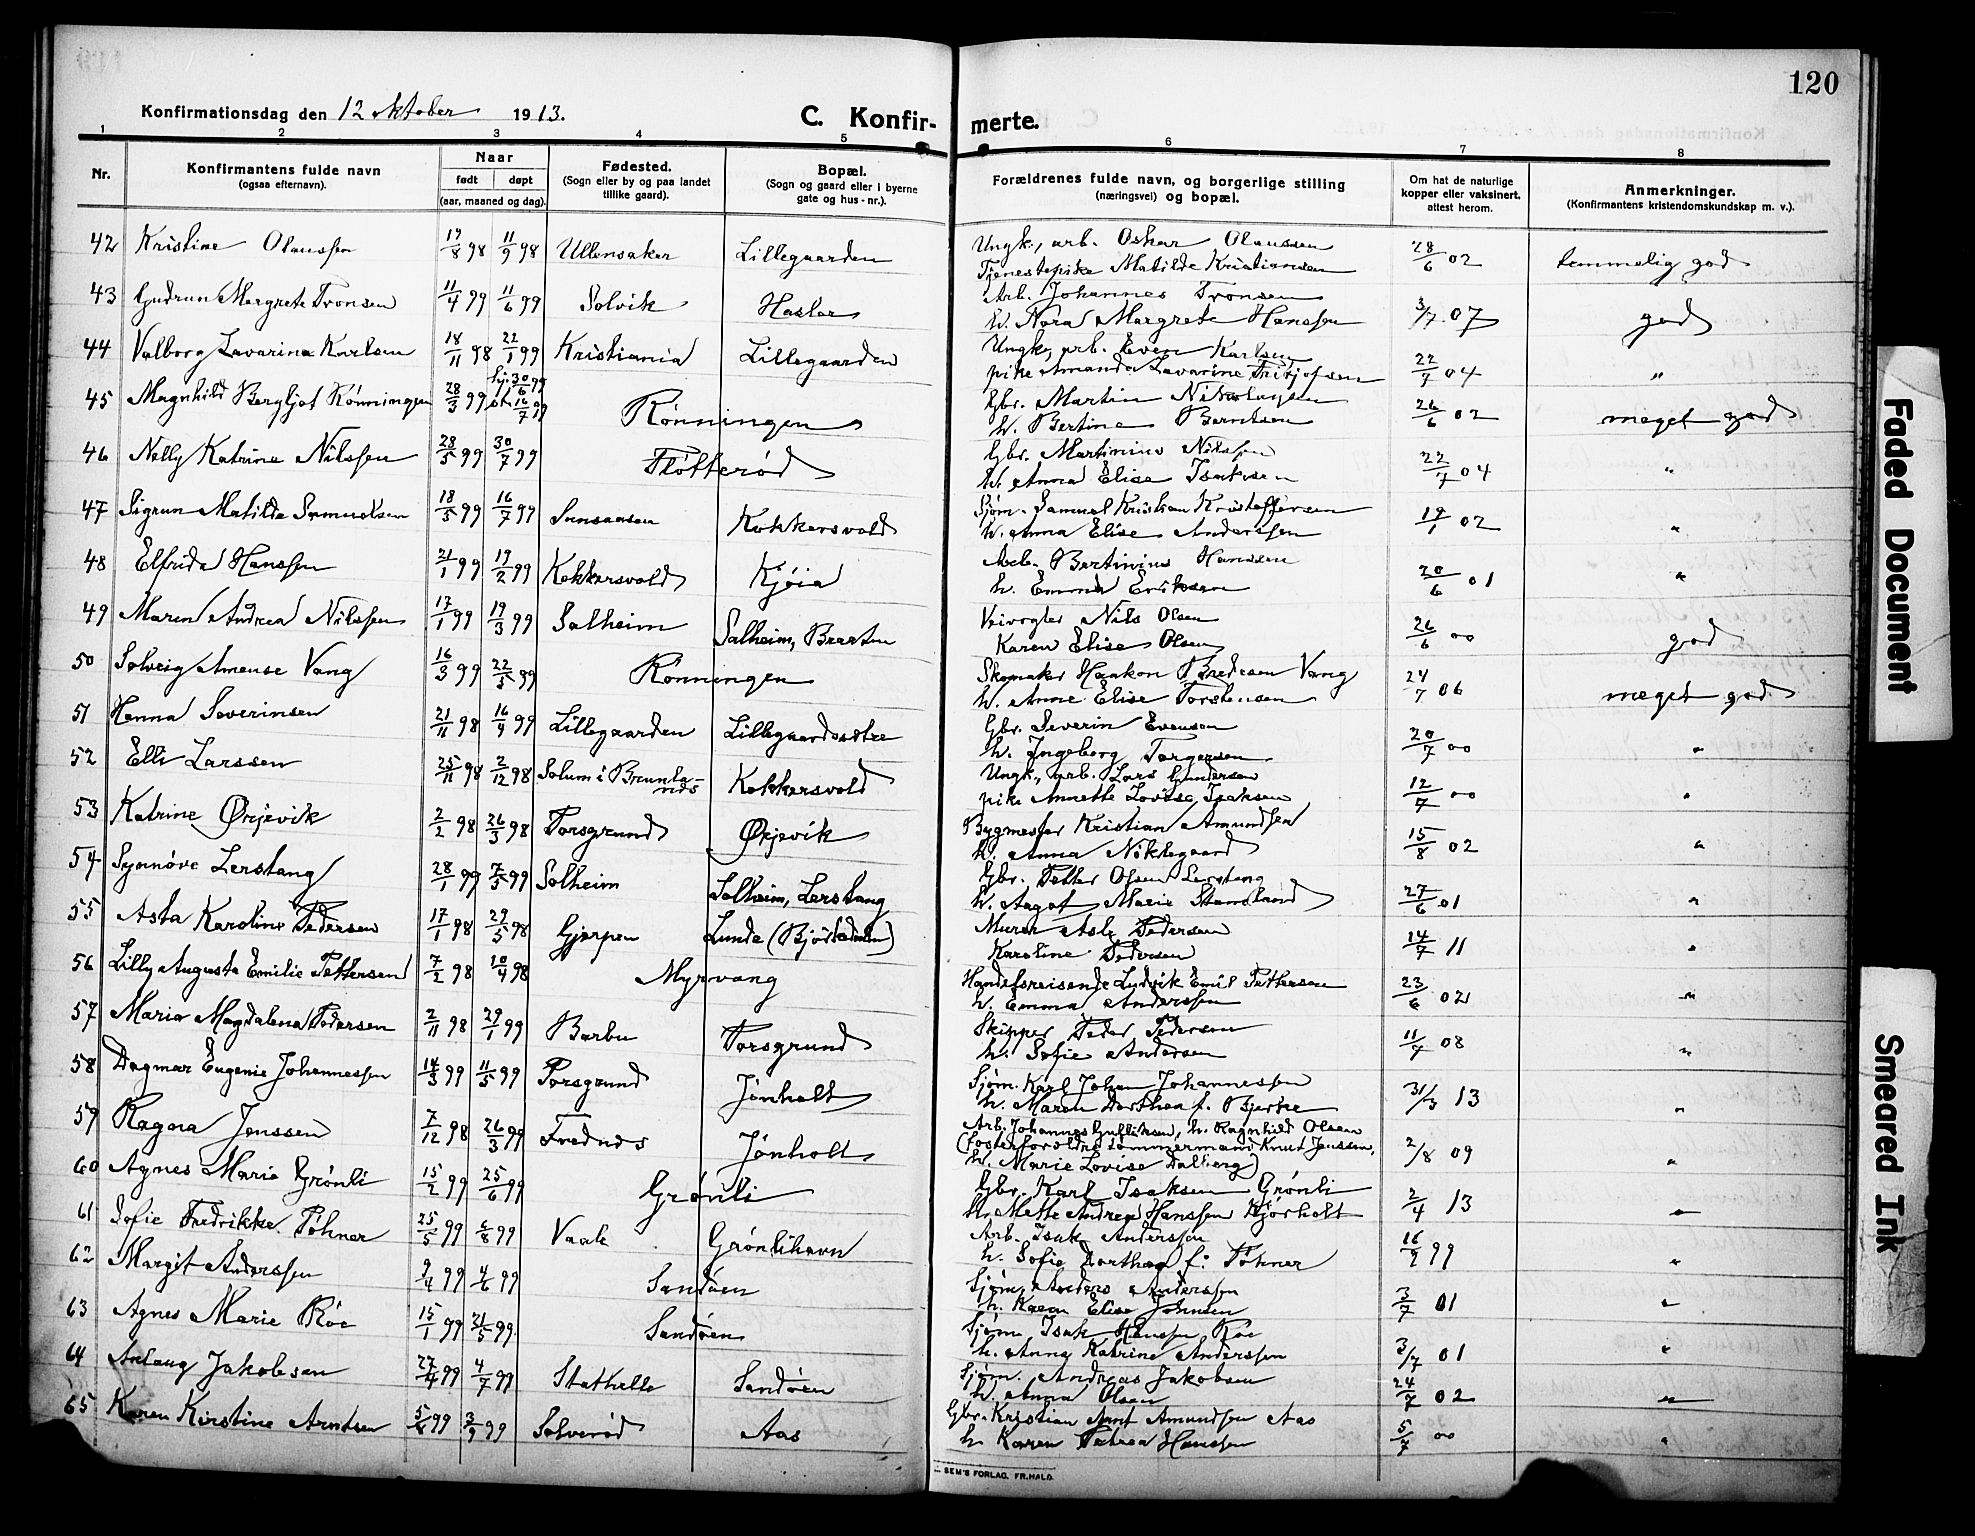 120
Konfirmationsdag den 12 oktober 1913.
C. Konfir-merte.
1 2 3 4 5 6 7 8
Nr.
Konfirmantens fulde navn
(ogsaa efternavn).
Naar
født døpt
(aar, maaned og dag).
Fødested.
(Sogn eller by og paa landet
tillike gaard).
Bopæl.
(Sogn og gaard eller i byerne
gate og hus-nr.).
Forældrenes fulde navn, og borgerlige stilling
(næringsvei) og bopæl.
Om hat de naturlige
kopper eller vaksinert.
attest herom.
Anmerkninger.
(Konfirmantens kristendomskundskap m. v.).
42 Kristine Olaussen 17/8 98 11/9 98 Ullensaker Lillegaarden Ungk., arb. Oskar Olaussen 28/6 02 temmelig god
Tjenestepike Matilde Kristiansen
43 Gudrun Margrete Tronsen 11/4 99 11/6 99 Solvik Haslar Arb. Johannes Tronsen 3/7 07 god
h. Nora Margrete Hanssen
44 Valborg Lavarina Karlsen 18/11 98 22/1 99 Kristiania Lillegaarden Ungk., arb. Even Karlsen 22/7 04 "
pike Amanda Lavarine Fritjofsen
45 Magnhild Bergljot Rønningen 28/3 99 hj. 30/6 99 st. 16/7 99 Rønningen Gbr. Martin Nikolaysen 26/6 02 meget god
h. Bertine Berntsen
46 Nelly Katrine Nilssen 28/5 99 30/7 99 Fløtterød Gbr. Martinius Nilssen 22/7 04 "
h. Anna Elise Isaksen
47 Sigrun Matilde Samuelsen 18/5 99 16/7 99 Sunsaasen Kokkersvold Sjøm. Samuel Kristian Kristoffersen 19/1 02 "
h. Anna Elise Anderssen
48 Elfrida Hanssen 21/1 99 19/2 99 Kokkersvold Kjøia Arb. Bertinius Hanssen 20/6 01 "
h. Emma Eriksen
49 Maren Andrea Nilssen 17/1 99 19/3 99 Salheim Salheim, Braaten Veivogter Nils Olsen 26/6 00 god
Karen Elise Olsen
50 Solveig Amense Vang 16/3 99 22/5 99 Rønningen Skomaker Haakon Bredesen Vang 24/7 06 meget god
h. Anne Elise Torstensen
51 Hanna Severinsen 21/11 98 16/4 99 Lillegaarden Lillegaardssætre Gbr. Severin Evensen 20/7 00 "
h. Ingeborg Torgersen
52 Elli Larssen 25/11 98 2/12 98 Solum i Brunlanæs Kokkersvold Ungk., arb. Lars Gundersen 12/7 00 "
pike Annette Lovise Isaksen
53 Katrine Ørjevik 2/2 98 26/3 98 Porsgrund Ørjevik Bygmester Kristian Amundsen 15/8 02 "
h. Anna Niklegaard
54 Synnøve Lerstang 28/1 99 7/5 99 Solheim Solheim, Lerstang Gbr. Petter Olsen Lerstang 27/6 01 "
h. Aagot Marie Stensland
55 Asta Karoline Pedersen 17/1 98 29/5 98 Gjerpen Lunde (Bjørkedalen) Murer Asle Pedersen 14/7 11 "
Karoline Pedersen
56 Lilly Augusta Emilie Pettersen 7/2 98 10/4 98 Myrvang Handelsreisende Ludvik Emil Pettersen 23/6 02 "
h. Emma Anderssen
57 Maria Magdalena Pedersen 2/11 98 29/1 99 Barbu Porsgrund Skipper Peder Pedersen 11/7 08 "
h. Sofie Andersen
58 Dagmar Eugenie Johannessen 14/3 99 11/5 99 Porsgrund Jønholt Sjøm. Karl Johan Johannessen 31/3 13 "
h. Maren Dorthea f. Bjerke
59 Ragna Jenssen 7/12 98 26/3 99 Frednæs Jønholt Arb. Johannes Gulliksen, h. Ragnhild Olsen 2/8 09 "
(Fosterforældre tømmermand Knut Jenssen,
h. Marie Lovise Dalberg)
60 Agnes Marie Grønli 15/2 99 25/6 99 Grønli Gbr. Karl Isaksen Grønli 2/4 13 "
h. Mette Andrea Hanssen Kjørholt
61 Sofie Fredrikke Pøhner 25/5 99 6/8 99 Vaale Grønlihavn Arb. Isak Anderssen 16/9 99 "
h. Sofie Dorthea f: Pøhner
62 Margit Anderssen 9/4 99 4/6 99 Sandøen Sjøm. Anders Anderssen 3/7 01 "
h. Karen Elise Johnsen
63 Agnes Marie Røe 15/1 99 21/5 99 Sandøen Sjøm. Isak Hanssen Røe 3/7 01 "
h. Anna Katrine Anderssen
64 Aslaug Jakobsen 27/4 99 4/7 99 Stathelle Sandøen Sjøm. Andreas Jakobsen 24/7 02 "
h. Anna Olsen
65 Karen Kirstine Arntsen 5/6 99 3/9 99 Solverød Aas Gbr. Kristian Arnt Amundsen Aas 5/7 00 "
h Karen Petrea Hanssen
SEM'S FORLAG, FR.HALD.
Faded Document
Smeared Ink